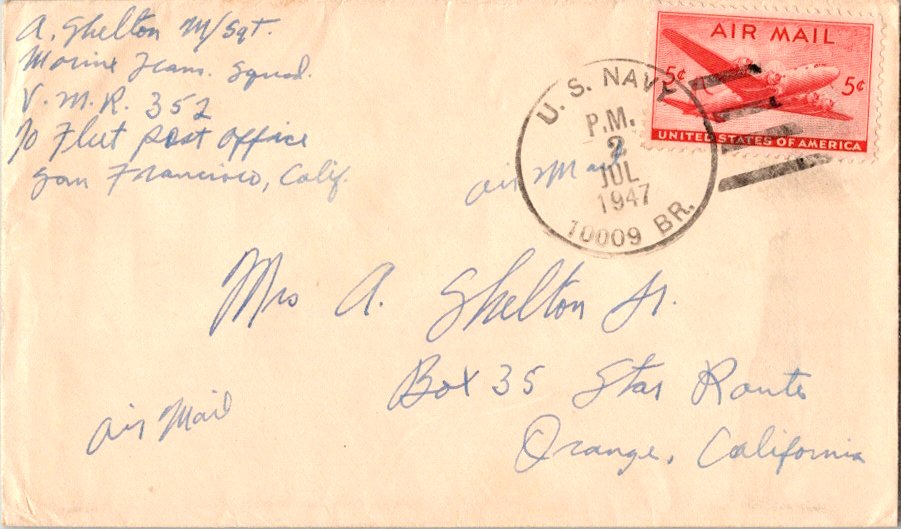 A. Shelton M/Sgt.
Marine Trans. Squad.
V.M.R. 352
℅ Fleet Post Office
San Francisco, Calif.
AIR MAIL
5¢ 5¢
UNITED STATES OF AMERICA
U.S. NAVY
P.M.
2
JUL
1947
10009 BR.
Air Mail
Mrs A. Shelton Jr.
Box 35 Star Route
Orange, California
Air Mail